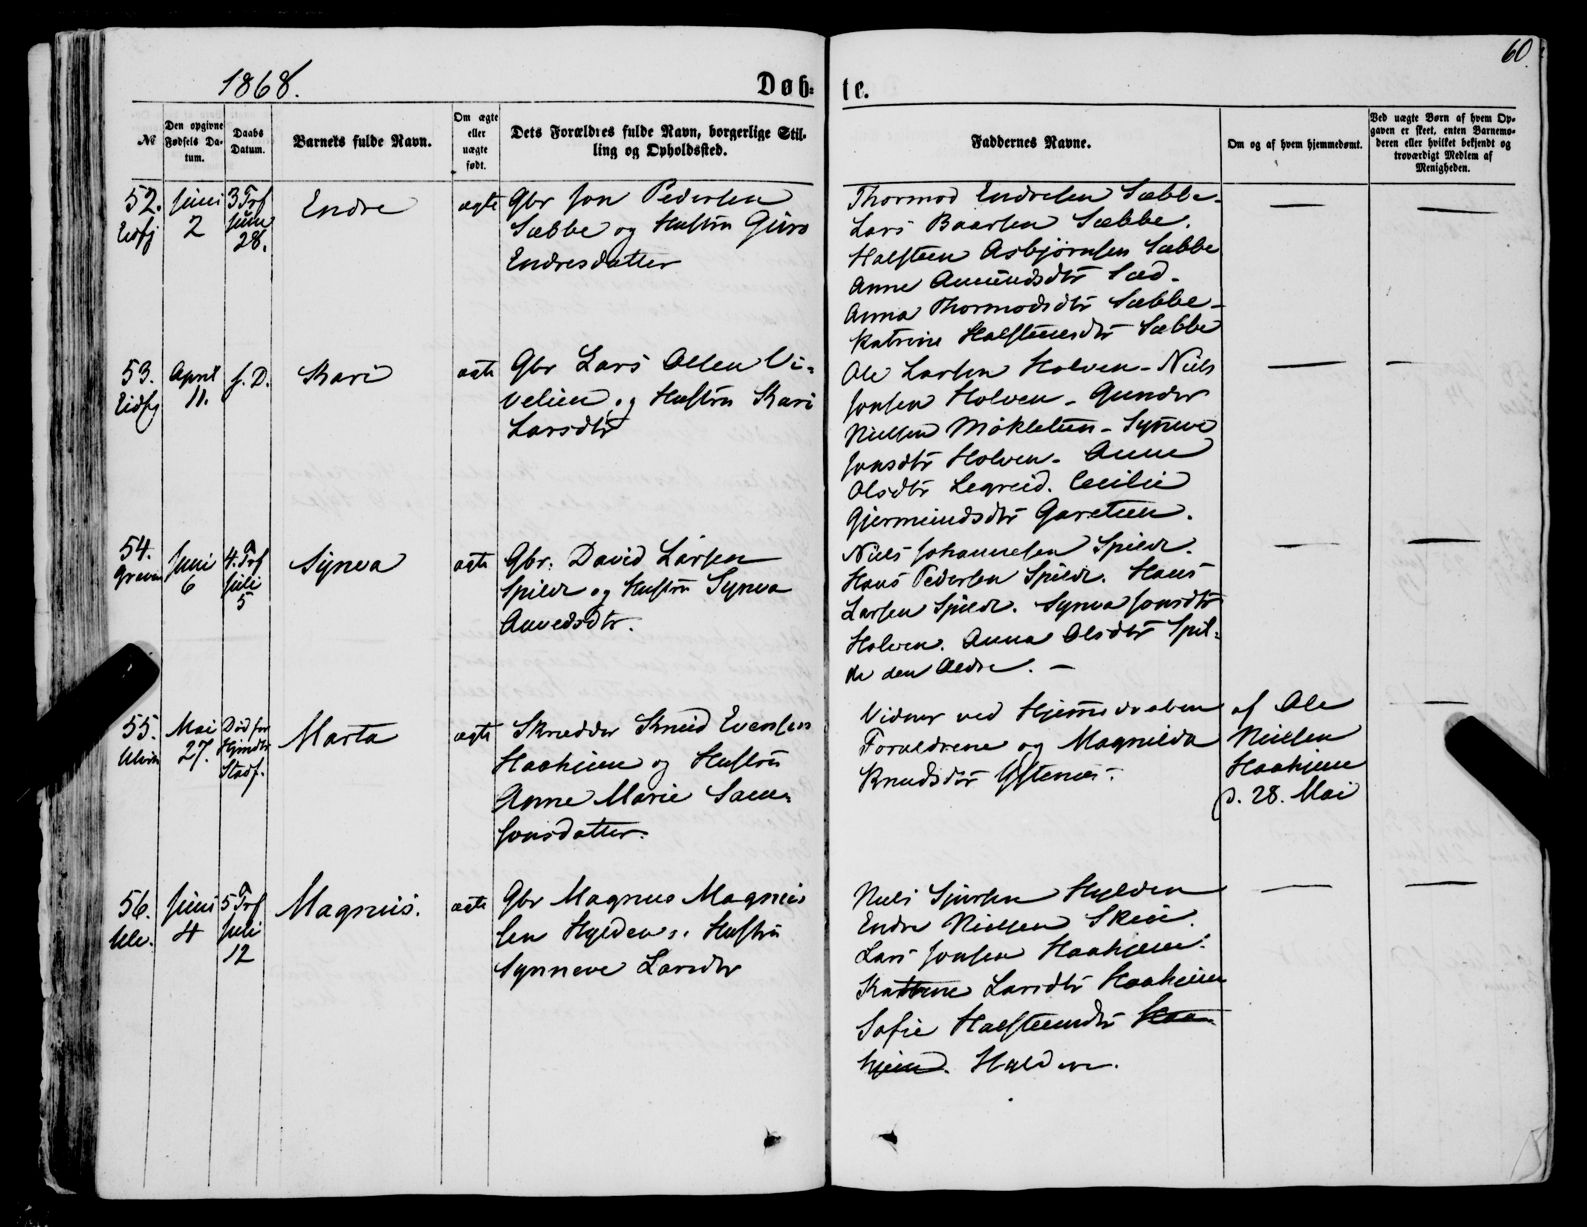 60.
1868.
Døb-
te.
№
Den opgivne Fødsels Da-
tum.
Daabs
Datum.
Barnets fulde Navn.
Om ægte
eller
uægte
født.
Dets Forældres fulde Navn, borgerlige Stil-
ling og Opholdssted.
Faddernes Navne.
Om og af hvem hjemmedøbt.
Ved uægte Børn af hvem Op-
gaven er skeet, enten Barnemo-
deren eller hvilket bekjendt og
troværdigt Medlem af
Menigheden.
52.
Eidfj
Juni
2
3 Trf
Juni
28.
Endre
ægte
Gbr Jon Pedersen
Sæbbe og Hustru Guro
Endresdatter
Thormod Endresen Sæbbe -
Lars Baarsen Sæbbe.
Halsteen Asbjørnsen Sæbbe
Anne Amundsdtr Sæd -
Anna Thormodsdtr Sæbbe -
Katrine Halsteensdtr Sæbbe
53.
Eidfj
April
11.
f. D.
Kari
ægte
Gbr Lars Olsen Vi-
velien og Hustru Kari
Larsdtr
Ole Larsen Holven - Niels
Jonsen Holven - Gunder
Nielsen Mökletun - Synneve
Jonsdtr Holven - Anne
Olsdtr Legreid. Cecilie
Gjermundsdtr Garetun.
54.
Graven
Juni
6
4. Trf
Juli
5
Synva
ægte
Gbr. David Larsen
Spilde og Hustru Synva
Auvedsdtr.
Niels Johannesen Spilde.
Hans Pedersen Spilde. Hans
Larsen Spilde. Synva Jonsdtr
Holven. Anna Olsdtr Spil-
de den Ældre. -
55.
Ulvik
Mai
27.
Død før
Stadf.
Marta
ægte
Skrædder Knud Evensen
Haaheim og Hustru
Anne Marie Sam-
sonsdatter.
Vidner ved Hjemmedaaben
Forældrene og Magnilda
Knudsdtr Ystenæs.
af Ole
Nielsen
Haaheim
d. 28. Mai
56.
Ulv.
Juni
4
5 Trf
Juli
12
Magnus.
ægte
Gbr Magnus Magnus
sen Hylden og Hustru
Synneve Larsdtr
Niels Sjursen Hylden
Endre Nielsen Skeie.
Lars Jonsen Haaheim.
Katrine Larsdtr Haaheim
Sofie Halsteensdtr Haa-
heim. Hylden.